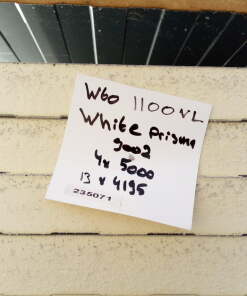 W60 1100 VL
White prisma
9002
4x 5000
13 x 4195
235071